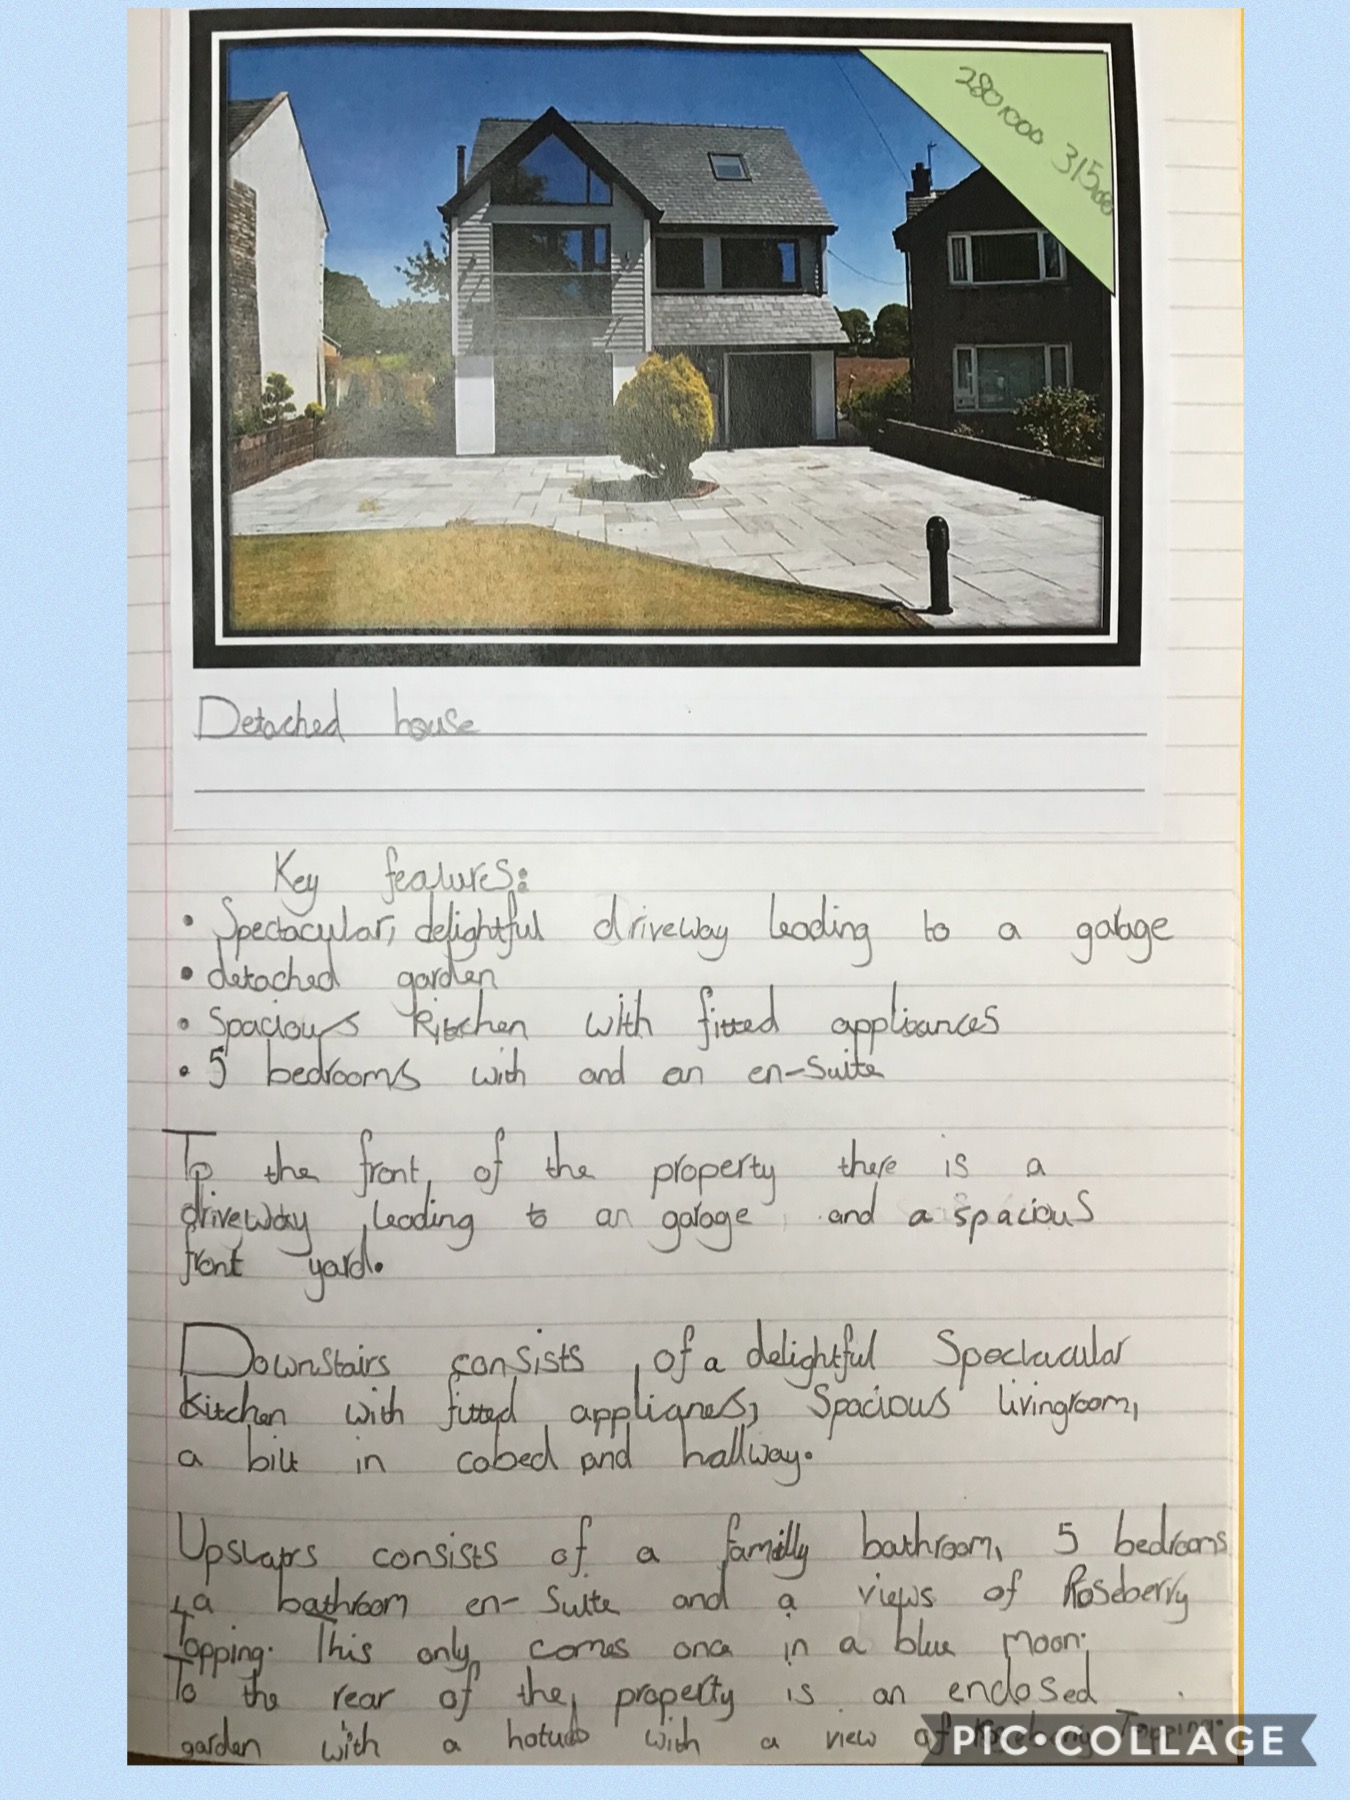 280,000 315,000
Detached house
Key features:
• Spectacular, delightful driveway leading to a garage
• detached garden
• Spacious kitchen with fitted appliances
• 5 bedrooms with and an en-suite
To the front, of the property there is a
driveway, leading to an garage and a spacious
front yard.
Downstairs consists, of a delightful Spectacular
kitchen with fitted applianes, Spacious livingroom,
a bilt in cobed and hallway.
Upstairs consists of a familly bathroom, 5 bedrooms
, a bathroom en-Suite and a views of Roseberry
Topping. This only comes once in a blue moon.
To the rear of the, property is an enclosed
garden with a hotub with a view of Roseberry Topping.
PIC•COLLAGE